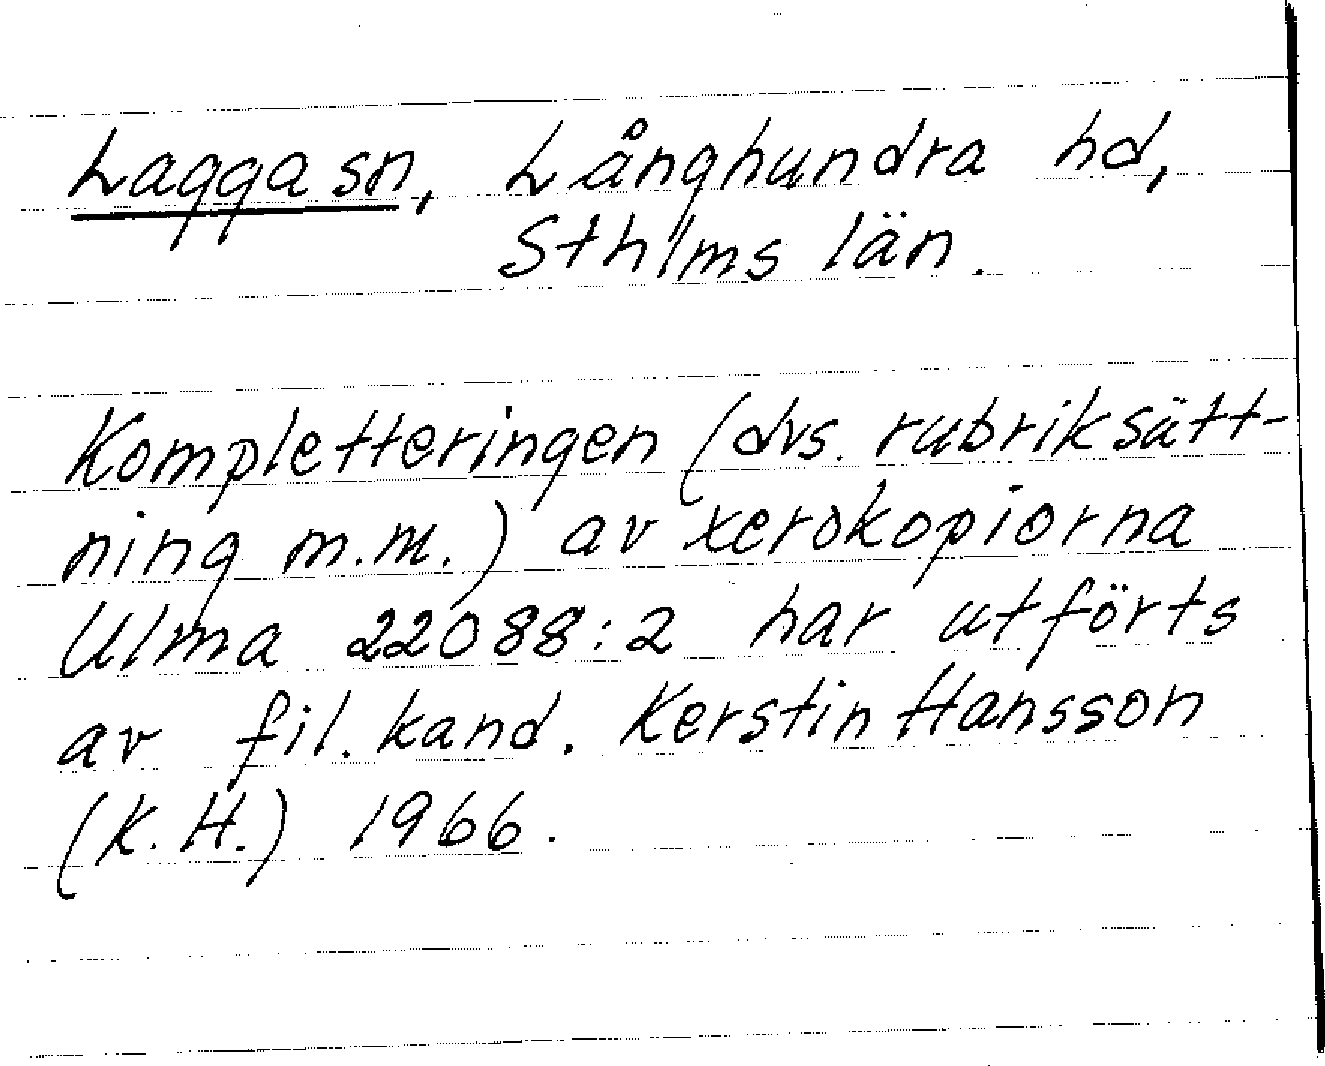 Lagga sn, Långhundra hd,
Sthlms län.
Kompletteringen (dvs. rubriksätt-
ning m.m.) av xerokopiorna
Ulma 22088:2 har utförts
av fil. kand. Kerstin Hansson
(K. H.) 1966.